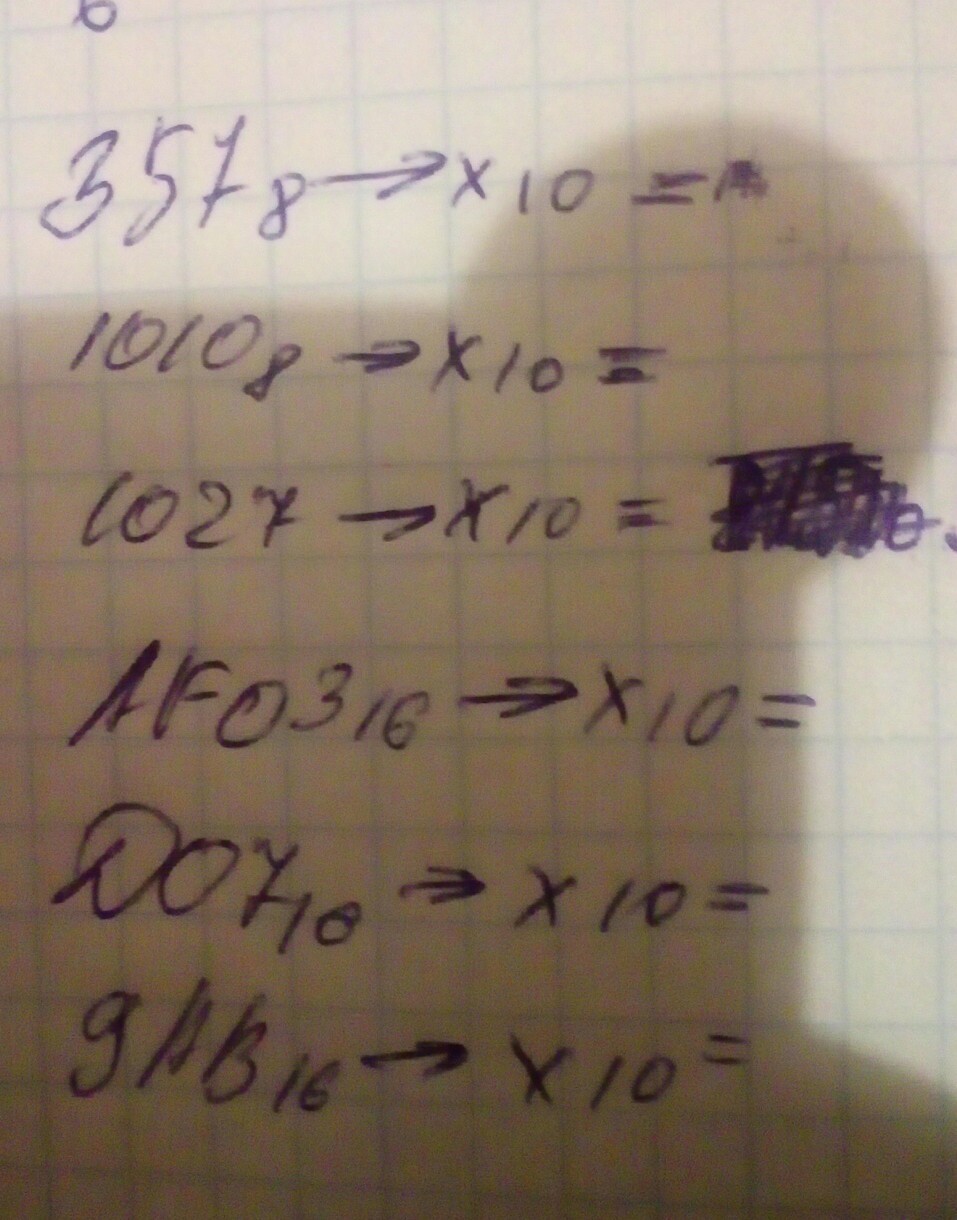 6
357₈ → x₁₀ =
1010₈ → x₁₀ =
1027 → x₁₀ =
AF03₁₆ → x₁₀ =
D07₁₀ → x₁₀ =
9AB₁₆ → x₁₀ =